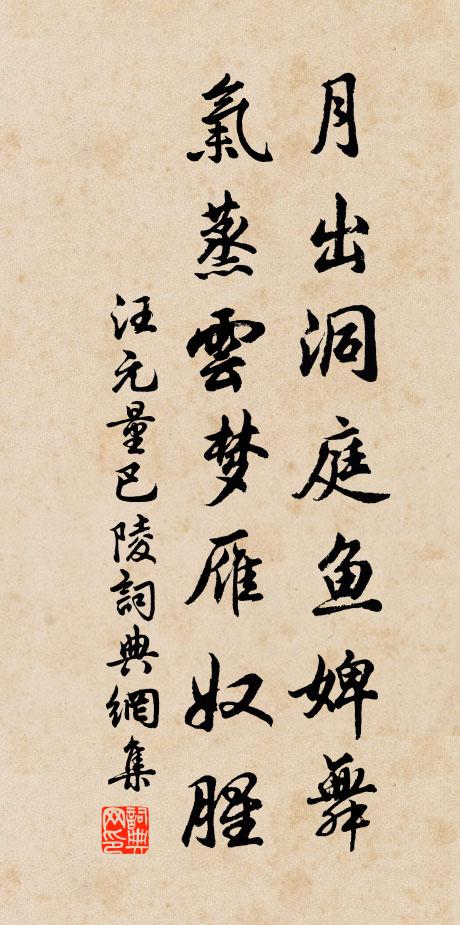 月出洞庭鱼婢舞
氣蒸雲梦雁奴腥
汪元量巴陵詞典網集
詞典網印